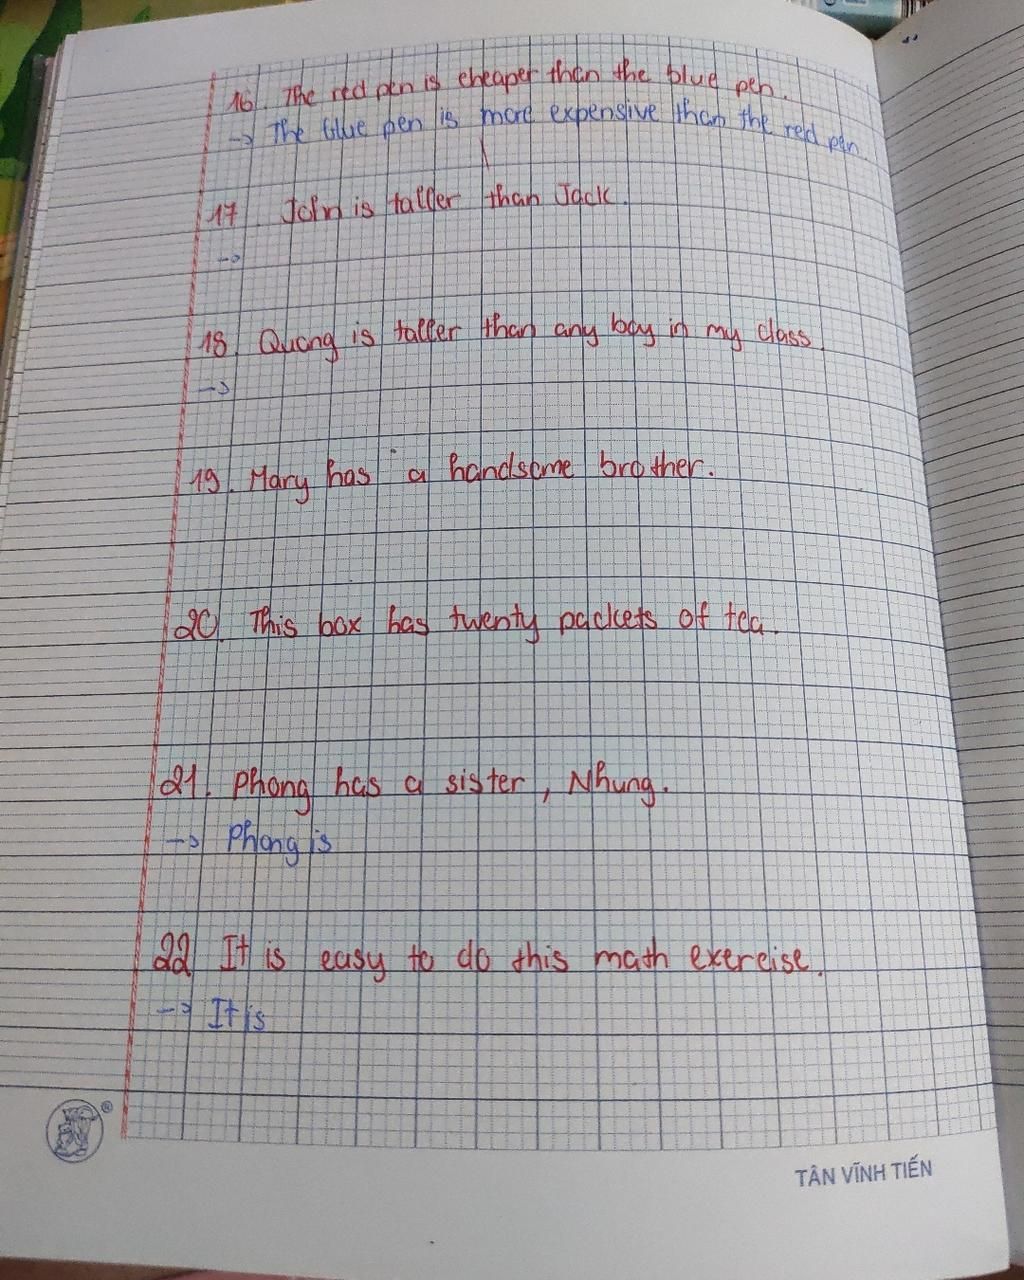 16. The red pen is cheaper than the blue pen.
-> The blue pen is more expensive than the red pen.
17. John is taller than Jack.
->
18. Quang is taller than any boy in my class.
->
19. Mary has a handsome brother.
20. This box has twenty packets of tea.
21. Phong has a sister, Nhung.
-> Phong is
22. It is easy to do this math exercise.
-> It is
TÂN VĨNH TIẾN